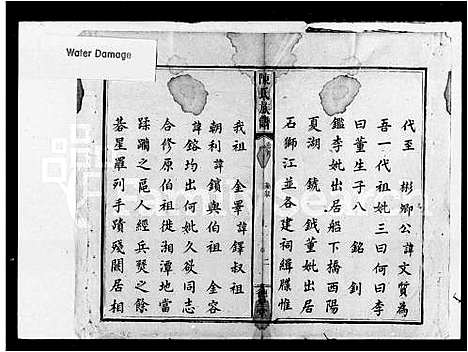 Water Damage
代至 彬卿公諱文質為
吾一代祖妣三曰何曰李
曰董生子八 銘 釗
鑑李妣出居船下橋西陽
夏湖 鋶 鉞董妣出居
石獅江並各建祠緝牒惟
陳氏族譜
我祖 金畢諱鐸叔祖
朝利諱鑌與伯祖 金容
諱鎔均出何妣久欲同志
合修原伯祖徙湘潭地當
蹂躪之區人經兵燹之餘
碁星羅列手蹟殘闕居相